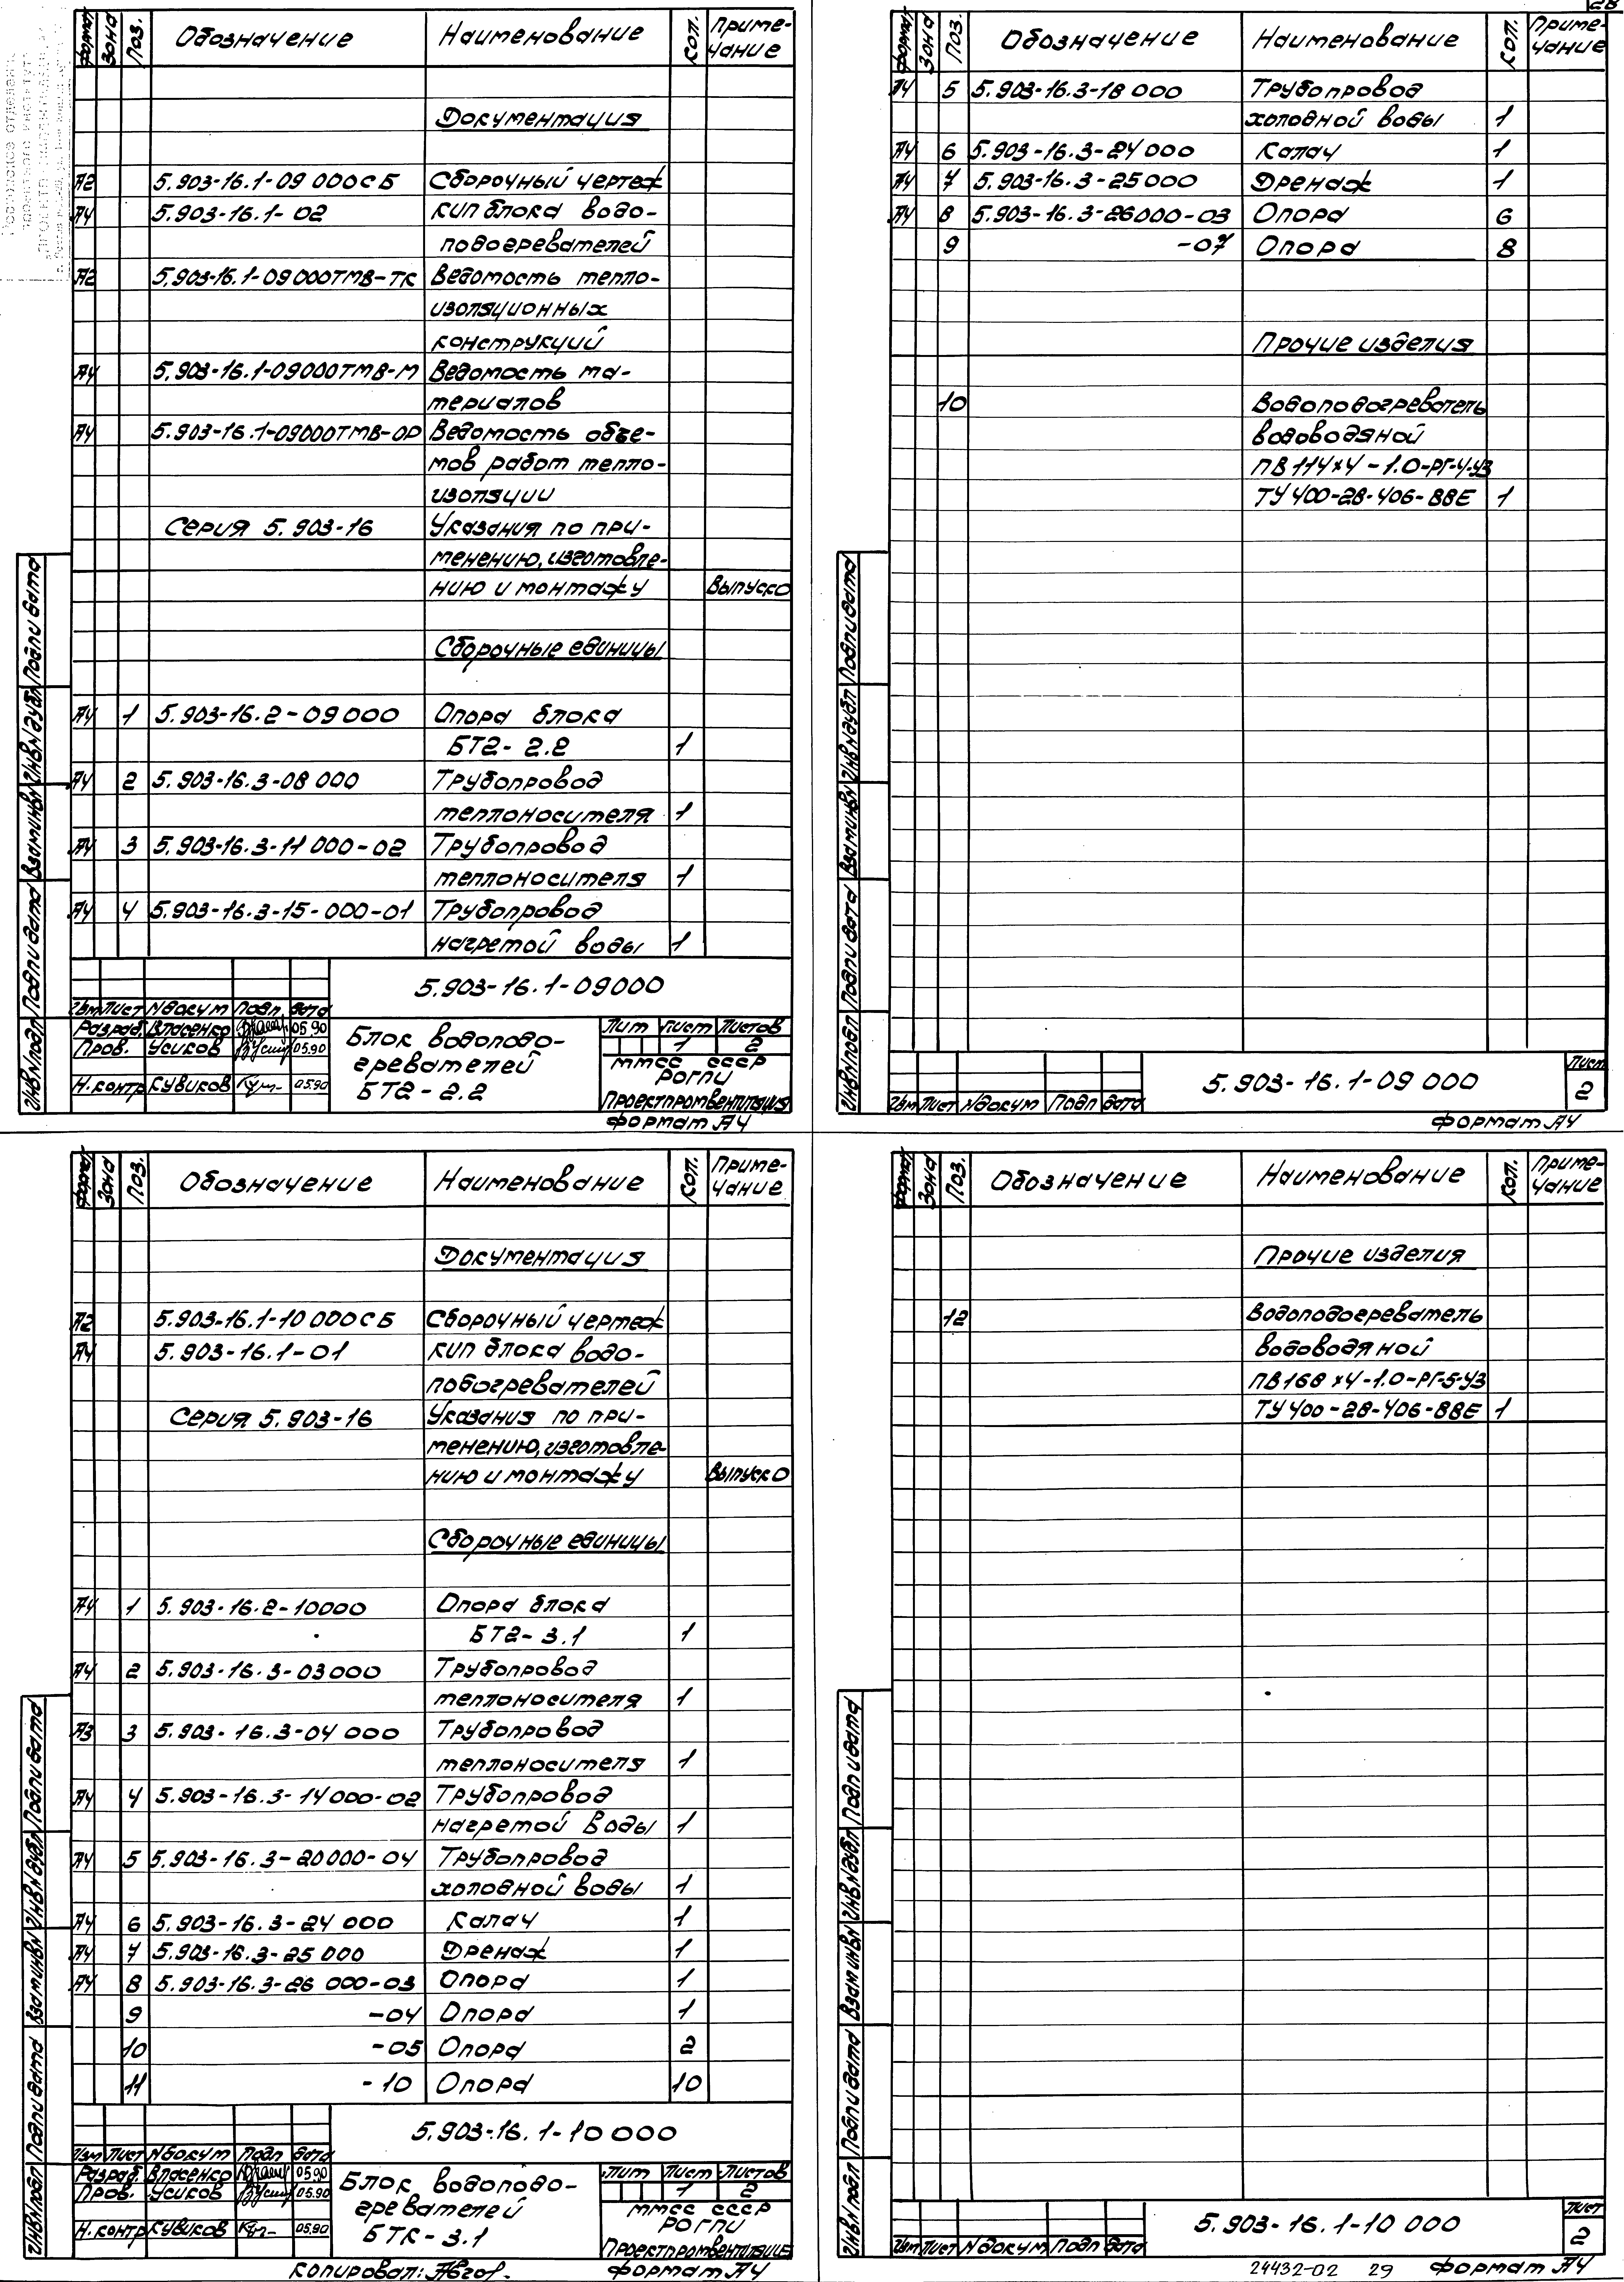 28
Формат Зона Поз. Обозначение Наименование Кол. Приме-
чание
Документация
А2 5.903-16.1-09 000СБ Сборочный чертеж
А4 5.903-16.1-02 КИП блока водо-
подогревателей
А2 5.903-16.1-09000ТМВ-ТК Ведомость тепло-
изоляционных
конструкций
А4 5.903-16.1-09000ТМВ-М Ведомость ма-
териалов
А4 5.903-16.1-09000ТМВ-ОР Ведомость объе-
мов работ тепло-
изоляции
Серия 5.903-16 Указания по при-
менению, изготовле-
нию и монтажу Выпуск 0
Сборочные единицы
А4 1 5.903-16.2-09000 Опора блока
БТ2-2.2 1
А4 2 5.903-16.3-08 000 Трубопровод
теплоносителя 1
А4 3 5.903-16.3-11 000-02 Трубопровод
теплоносителя 1
А4 4 5.903-16.3-15-000-01 Трубопровод
нагретой воды 1
5.903-16.1-09000
Изм Лист № докум Подп. Дата
Разраб. Власенко 05.90
Пров. Усиков 05.90
Н.контр Кубиков 05.90
Блок водоподо-
гревателей
БТ2-2.2
Лит Лист Листов
1 2
ММСС СССР
РОГПИ
Проектпромвентиляция
Формат А4
Инв№подл Подп и дата Взам инв№ Инв№дубл Подп и дата
Формат Зона Поз. Обозначение Наименование Кол. Приме-
чание
А4 5 5.903-16.3-18 000 Трубопровод
холодной воды 1
А4 6 5.903-16.3-24000 Калач 1
А4 7 5.903-16.3-25000 Дренаж 1
А4 8 5.903-16.3-26000-03 Опора 6
9 -07 Опора 8
Прочие изделия
10 Водоподогреватель
водоводяной
ПВ 114х4-1.0-РГ-4-У3
ТУ 400-28-406-88Е 1
5.903-16.1-09 000
Лист
2
Изм Лист № докум Подп Дата
Формат А4
Инв№подл Подп и дата Взам инв№ Инв№дубл Подп и дата
Формат Зона Поз. Обозначение Наименование Кол. Приме-
чание
Документация
А2 5.903-16.1-10 000СБ Сборочный чертеж
А4 5.903-16.1-01 КИП блока водо-
подогревателей
Серия 5.903-16 Указания по при-
менению, изготовле-
нию и монтажу Выпуск 0
Сборочные единицы
А4 1 5.903-16.2-10000 Опора блока
БТ2-3.1 1
А4 2 5.903-16.3-03000 Трубопровод
теплоносителя 1
А3 3 5.903-16.3-04 000 Трубопровод
теплоносителя 1
А4 4 5.903-16.3-14000-02 Трубопровод
нагретой воды 1
А4 5 5.903-16.3-20000-04 Трубопровод
холодной воды 1
А4 6 5.903-16.3-24 000 Калач 1
А4 7 5.903-16.3-25 000 Дренаж 1
А4 8 5.903-16.3-26 000-03 Опора 1
9 -04 Опора 1
10 -05 Опора 2
11 -10 Опора 10
5.903-16.1-10 000
Изм Лист № докум Подп Дата
Разраб. Власенко 05.90
Пров. Усиков 05.90
Н.контр Кубиков 05.90
Блок водоподо-
гревателей
БТК-3.1
Лит Лист Листов
1 2
ММСС СССР
РОГПИ
Проектпромвентиляция
Копировал: Формат А4
Инв№подл Подп и дата Взам инв№ Инв№дубл Подп и дата
Формат Зона Поз. Обозначение Наименование Кол. Приме-
чание
Прочие изделия
12 Водоподогреватель
водоводяной
ПВ168х4-1.0-РГ-5-У3
ТУ 400-28-406-88Е 1
5.903-16.1-10 000
Лист
2
Изм Лист № докум Подп Дата
24432-02 29 Формат А4
Инв№подл Подп и дата Взам инв№ Инв№дубл Подп и дата